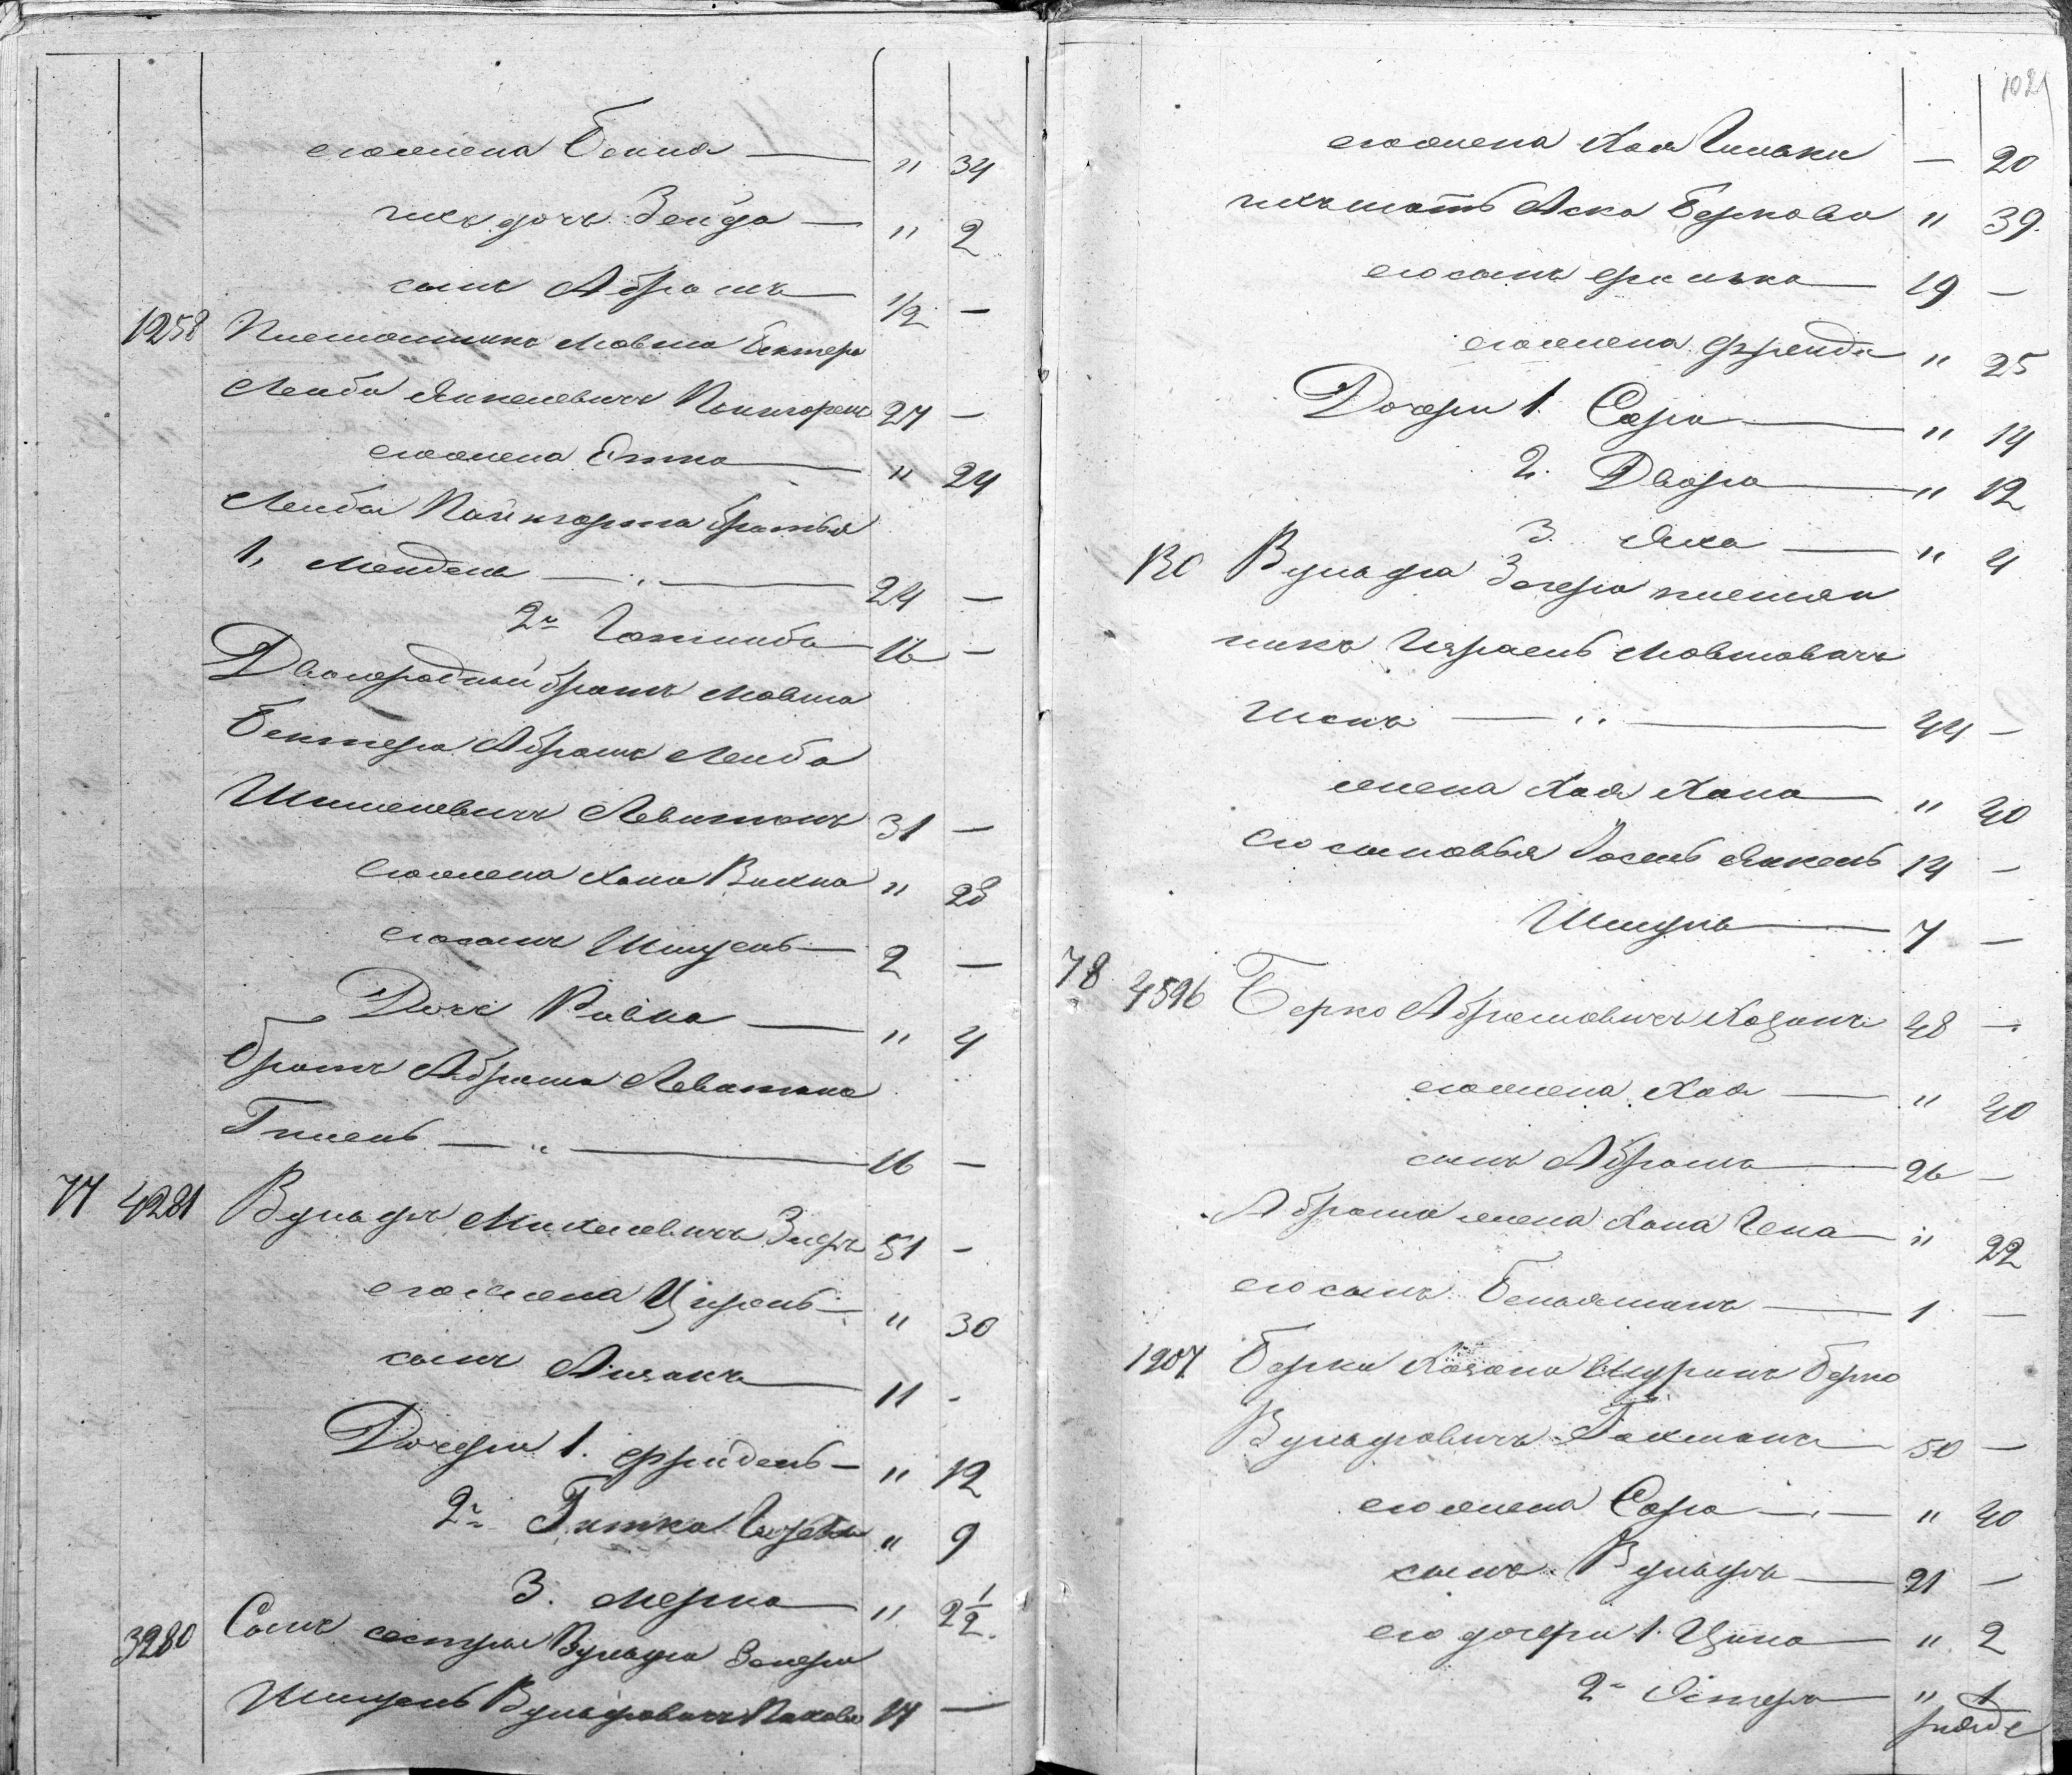 его жена Бейла — " 34
ихъ дочь Зельда — " 2
сынъ Абрамъ — 1/2 —
1258 Племянникъ Мовша Бектера
Лейба Янкелевичъ 27 —
его жена Етка — " 24
Лейбы братья
1, Мендель — 24 —
2, Готлибъ — 16 —
Двоюродный братъ Мовша
Бектера Абрамъ Лейба
Шмулевичъ Левитанъ 31 —
его жена Хана Рыхла " 28
его сынъ Шмуель — 2 —
Дочь Ривка — " 4
братъ Абрама Левитана
Гилель — " — 16 —
77 4281 Вульфъ Михелевичъ Зегеръ 51 —
его жена Цирель — " 30
сынъ Айзикъ — 11 -
Дочери 1. Фрейдель — " 12
2, Гитка " 9
3. Мерка — " 2 1/2
3280 Сынъ сестры Вульфа Зегера
Шмуель Вульфовичъ 17 —
1021
его жена Хая — 20
ихъ мать Аска Беркова " 39.
его сынъ Фишка — 19 —
его жена Фрейда " 25
Дочери 1. Сара — " 14
2. Двора — " 12
3. Яха — " 4
130 Вульфа Зегера племян
никъ Израель Мовшовичъ
— " — 44 —
жена Хая Хана — " 40
его сыновья Іосель Янкель 14 —
Шмуль — 7 —
78 4596 Берко Абрамовичъ Козанъ 48 —
его жена Хая — " 40
сынъ Абрамъ — 26 —
Абрама жена Хана Гена — " 22
его сынъ Беньяминъ — 1 —
1907 Берки Козана Шуринъ Берко
Вульфовичъ Гохманъ — 50 —
его жена Сара — " 40
сынъ Вульфъ — 21 —
его дочери 1. Ципа — " 2
2, Эстера — " 1